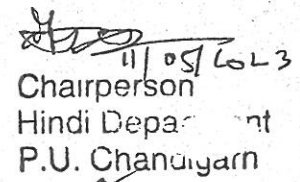 11/05/2023
Chairperson
Hindi Depa nt
P.U. Chandigarh